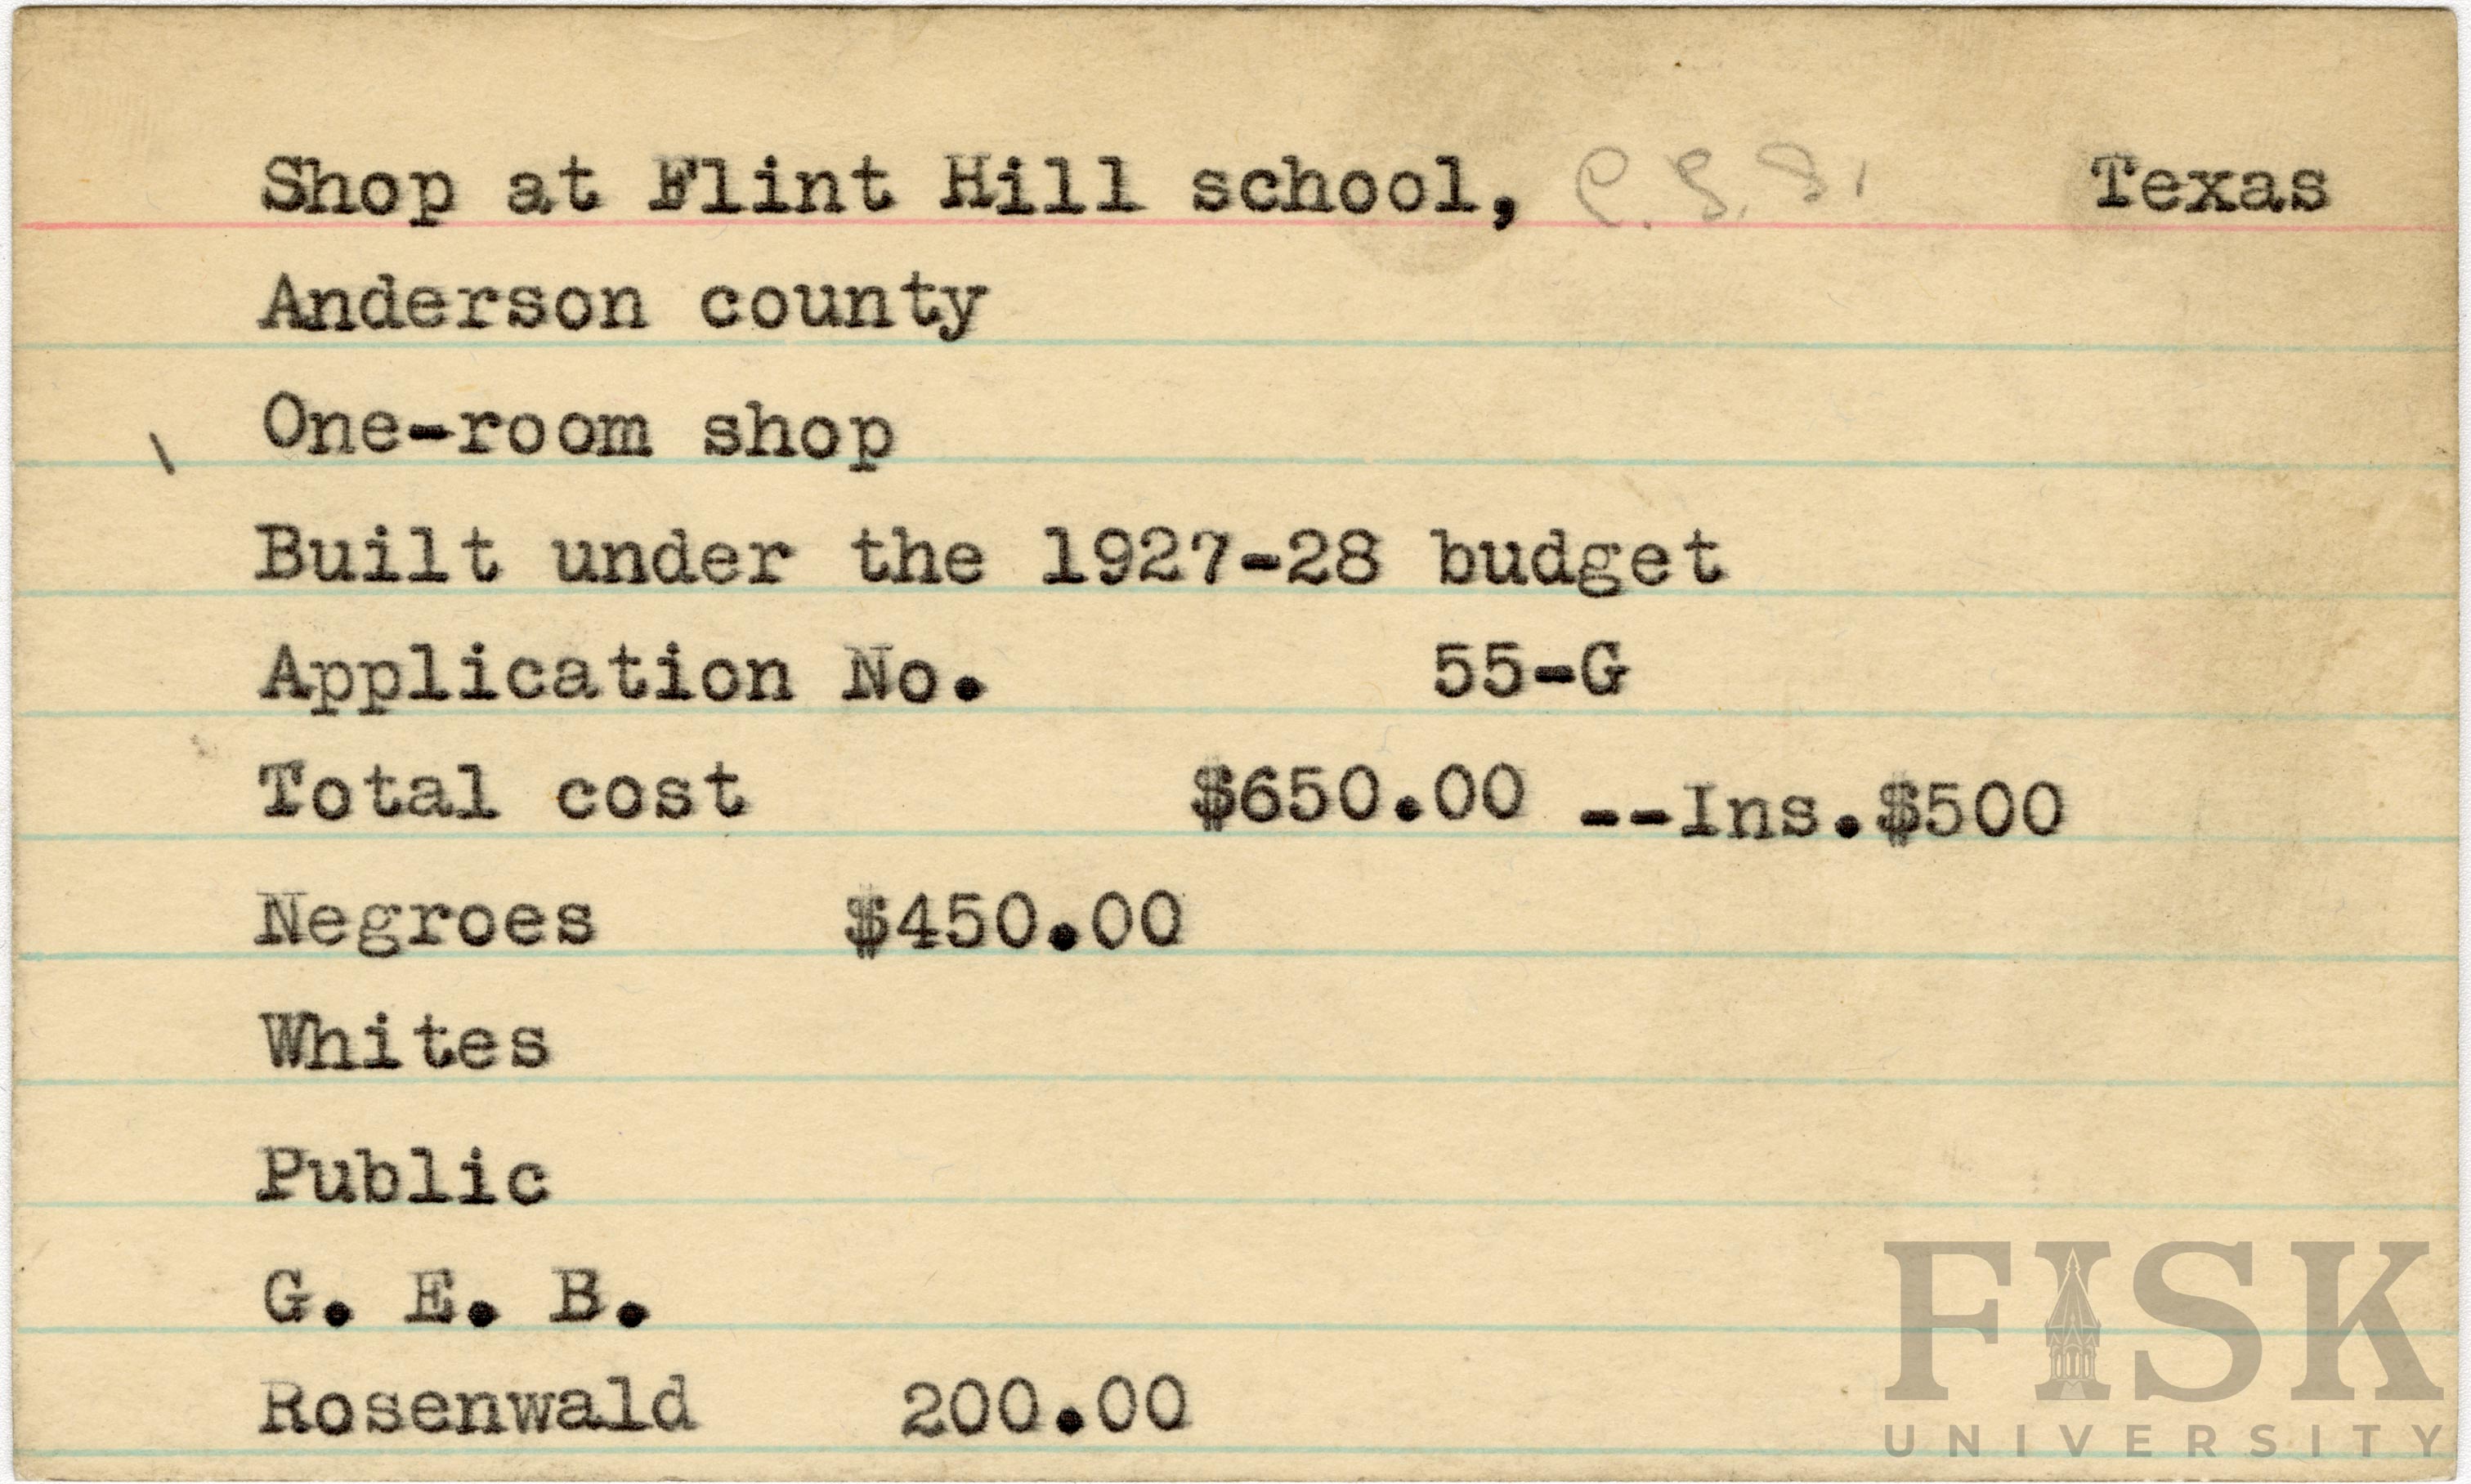 Shop at Flint Hill school, Texas
Anderson county
One-room shop
Built under the 1927-28 budget
Application No. 55-G
Total cost $650.00 --Ins.$500
Negroes $450.00
Whites
Public
G. E. B.
Rosenwald 200.00
FISK
UNIVERSITY